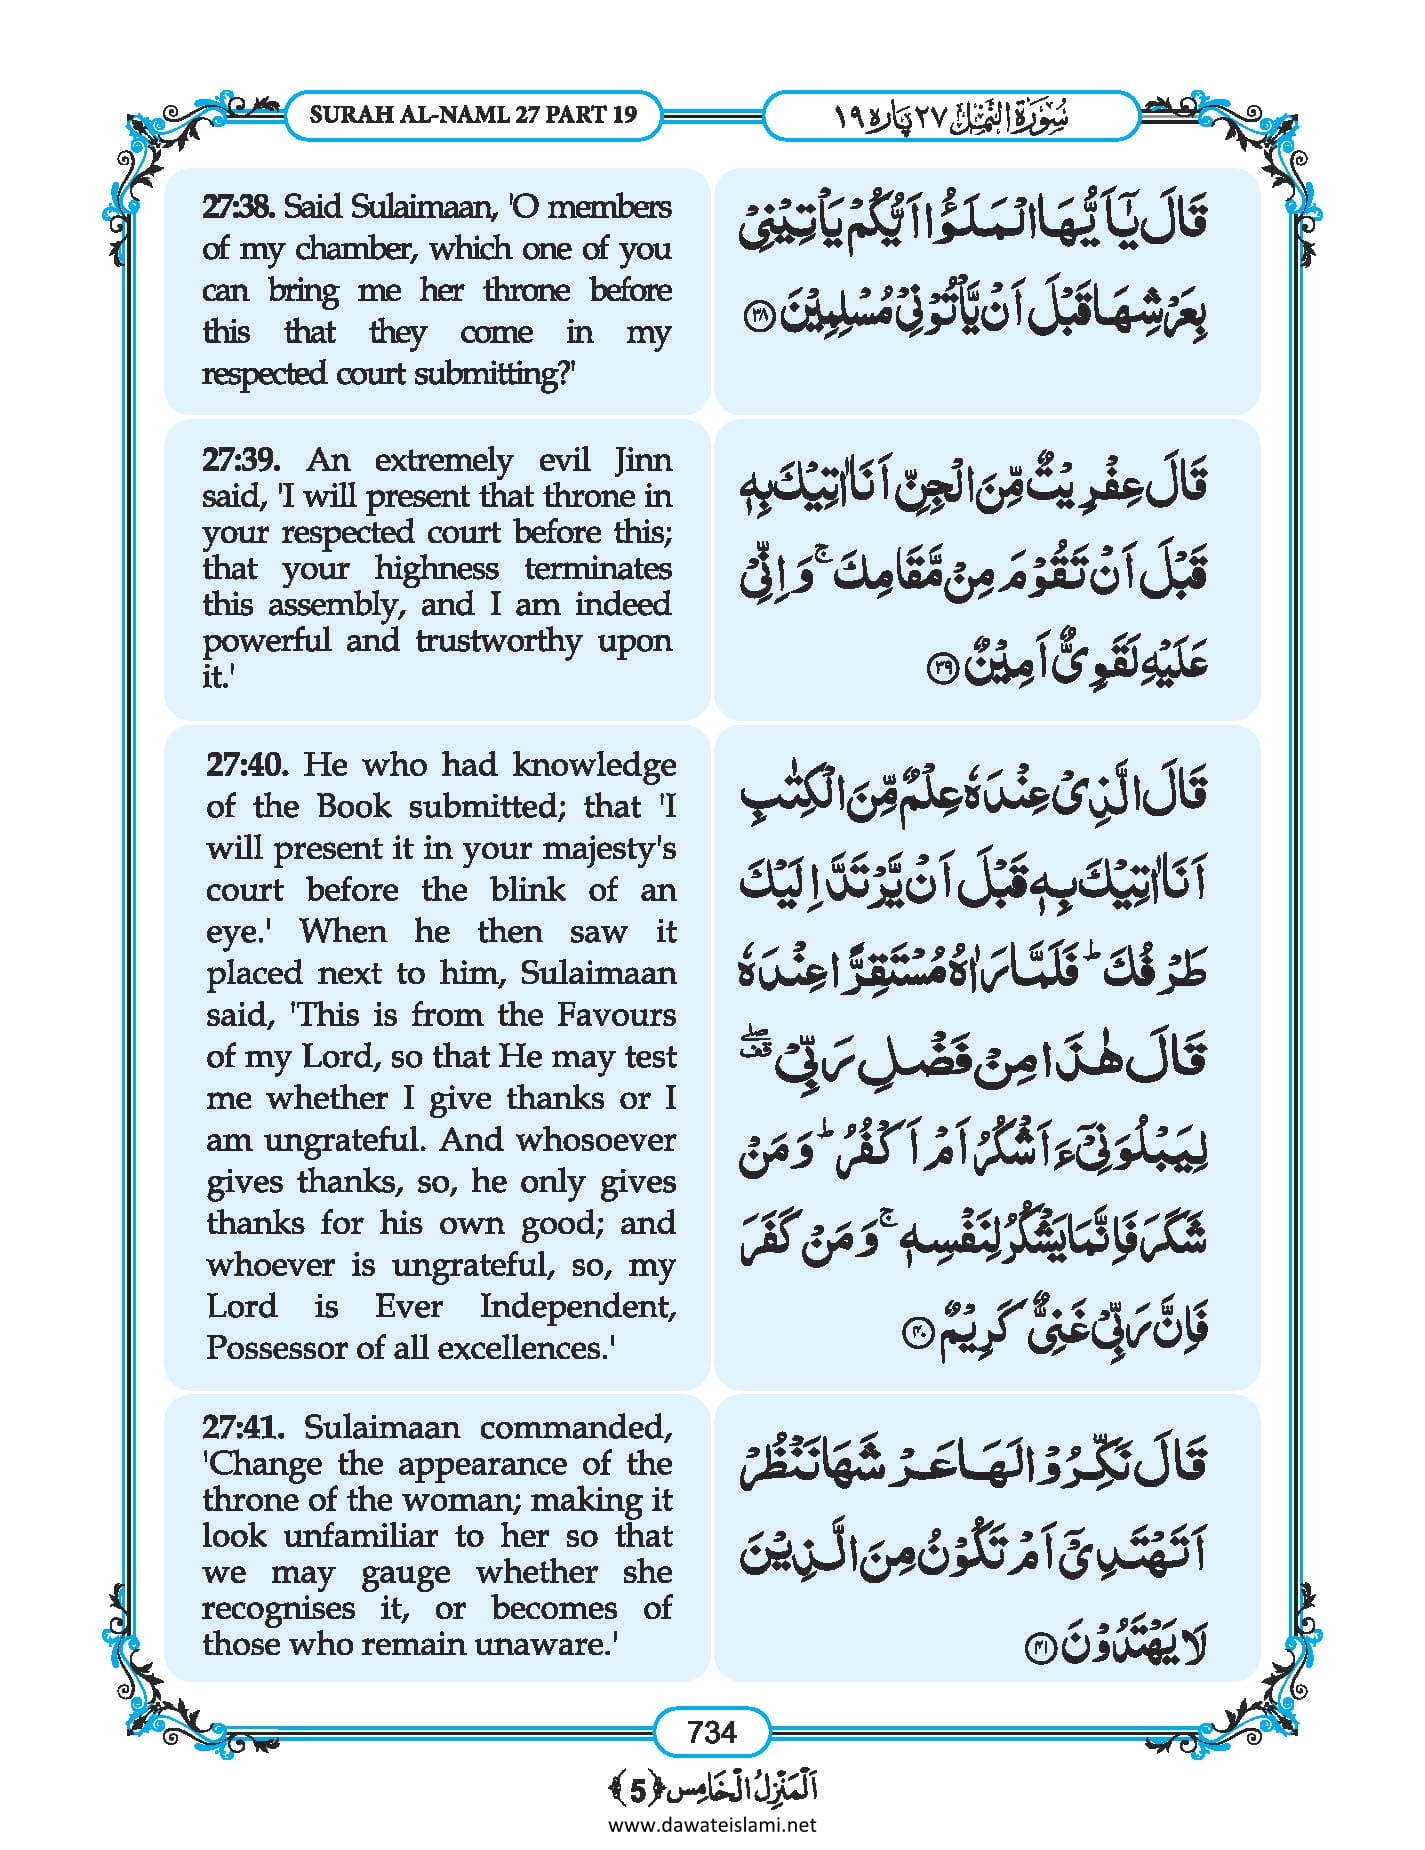 SURAH AL-NAML 27 PART 19
سُوْرَۃُ النَّمْل ٢٧ پارہ ١٩
27:38. Said Sulaimaan, 'O members
of my chamber, which one of you
can bring me her throne before
this that they come in my
respected court submitting?'
قَالَ یٰۤاَیُّهَا الْمَلَؤُا اَیُّكُمْ یَاْتِیْنِیْ
بِعَرْشِهَا قَبْلَ اَنْ یَّاْتُوْنِیْ مُسْلِمِیْنَ ﴿۳۸﴾
27:39. An extremely evil Jinn
said, 'I will present that throne in
your respected court before this;
that your highness terminates
this assembly, and I am indeed
powerful and trustworthy upon
it.'
قَالَ عِفْرِیْتٌ مِّنَ الْجِنِّ اَنَا اٰتِیْكَ بِهٖ
قَبْلَ اَنْ تَقُوْمَ مِنْ مَّقَامِكَ ۚ وَ اِنِّیْ
عَلَیْهِ لَقَوِیٌّ اَمِیْنٌ ﴿۳۹﴾
27:40. He who had knowledge
of the Book submitted; that 'I
will present it in your majesty's
court before the blink of an
eye.' When he then saw it
placed next to him, Sulaimaan
said, 'This is from the Favours
of my Lord, so that He may test
me whether I give thanks or I
am ungrateful. And whosoever
gives thanks, so, he only gives
thanks for his own good; and
whoever is ungrateful, so, my
Lord is Ever Independent,
Possessor of all excellences.'
قَالَ الَّذِیْ عِنْدَهٗ عِلْمٌ مِّنَ الْكِتٰبِ
اَنَا اٰتِیْكَ بِهٖ قَبْلَ اَنْ یَّرْتَدَّ اِلَیْكَ
طَرْفُكَ ؕ فَلَمَّا رَاٰهُ مُسْتَقِرًّا عِنْدَهٗ
قَالَ هٰذَا مِنْ فَضْلِ رَبِّیْ ۖ۫
لِیَبْلُوَنِیْۤ ءَاَشْكُرُ اَمْ اَكْفُرُ ؕ وَ مَنْ
شَكَرَ فَاِنَّمَا یَشْكُرُ لِنَفْسِهٖ ۚ وَ مَنْ كَفَرَ
فَاِنَّ رَبِّیْ غَنِیٌّ كَرِیْمٌ ﴿۴۰﴾
27:41. Sulaimaan commanded,
'Change the appearance of the
throne of the woman; making it
look unfamiliar to her so that
we may gauge whether she
recognises it, or becomes of
those who remain unaware.'
قَالَ نَكِّرُوْا لَهَا عَرْشَهَا نَنْظُرْ
اَتَهْتَدِیْۤ اَمْ تَكُوْنُ مِنَ الَّذِیْنَ
لَا یَهْتَدُوْنَ ﴿۴۱﴾
734
اَلْمَنْزِلُ الْخَامِس ﴿5﴾
www.dawateislami.net